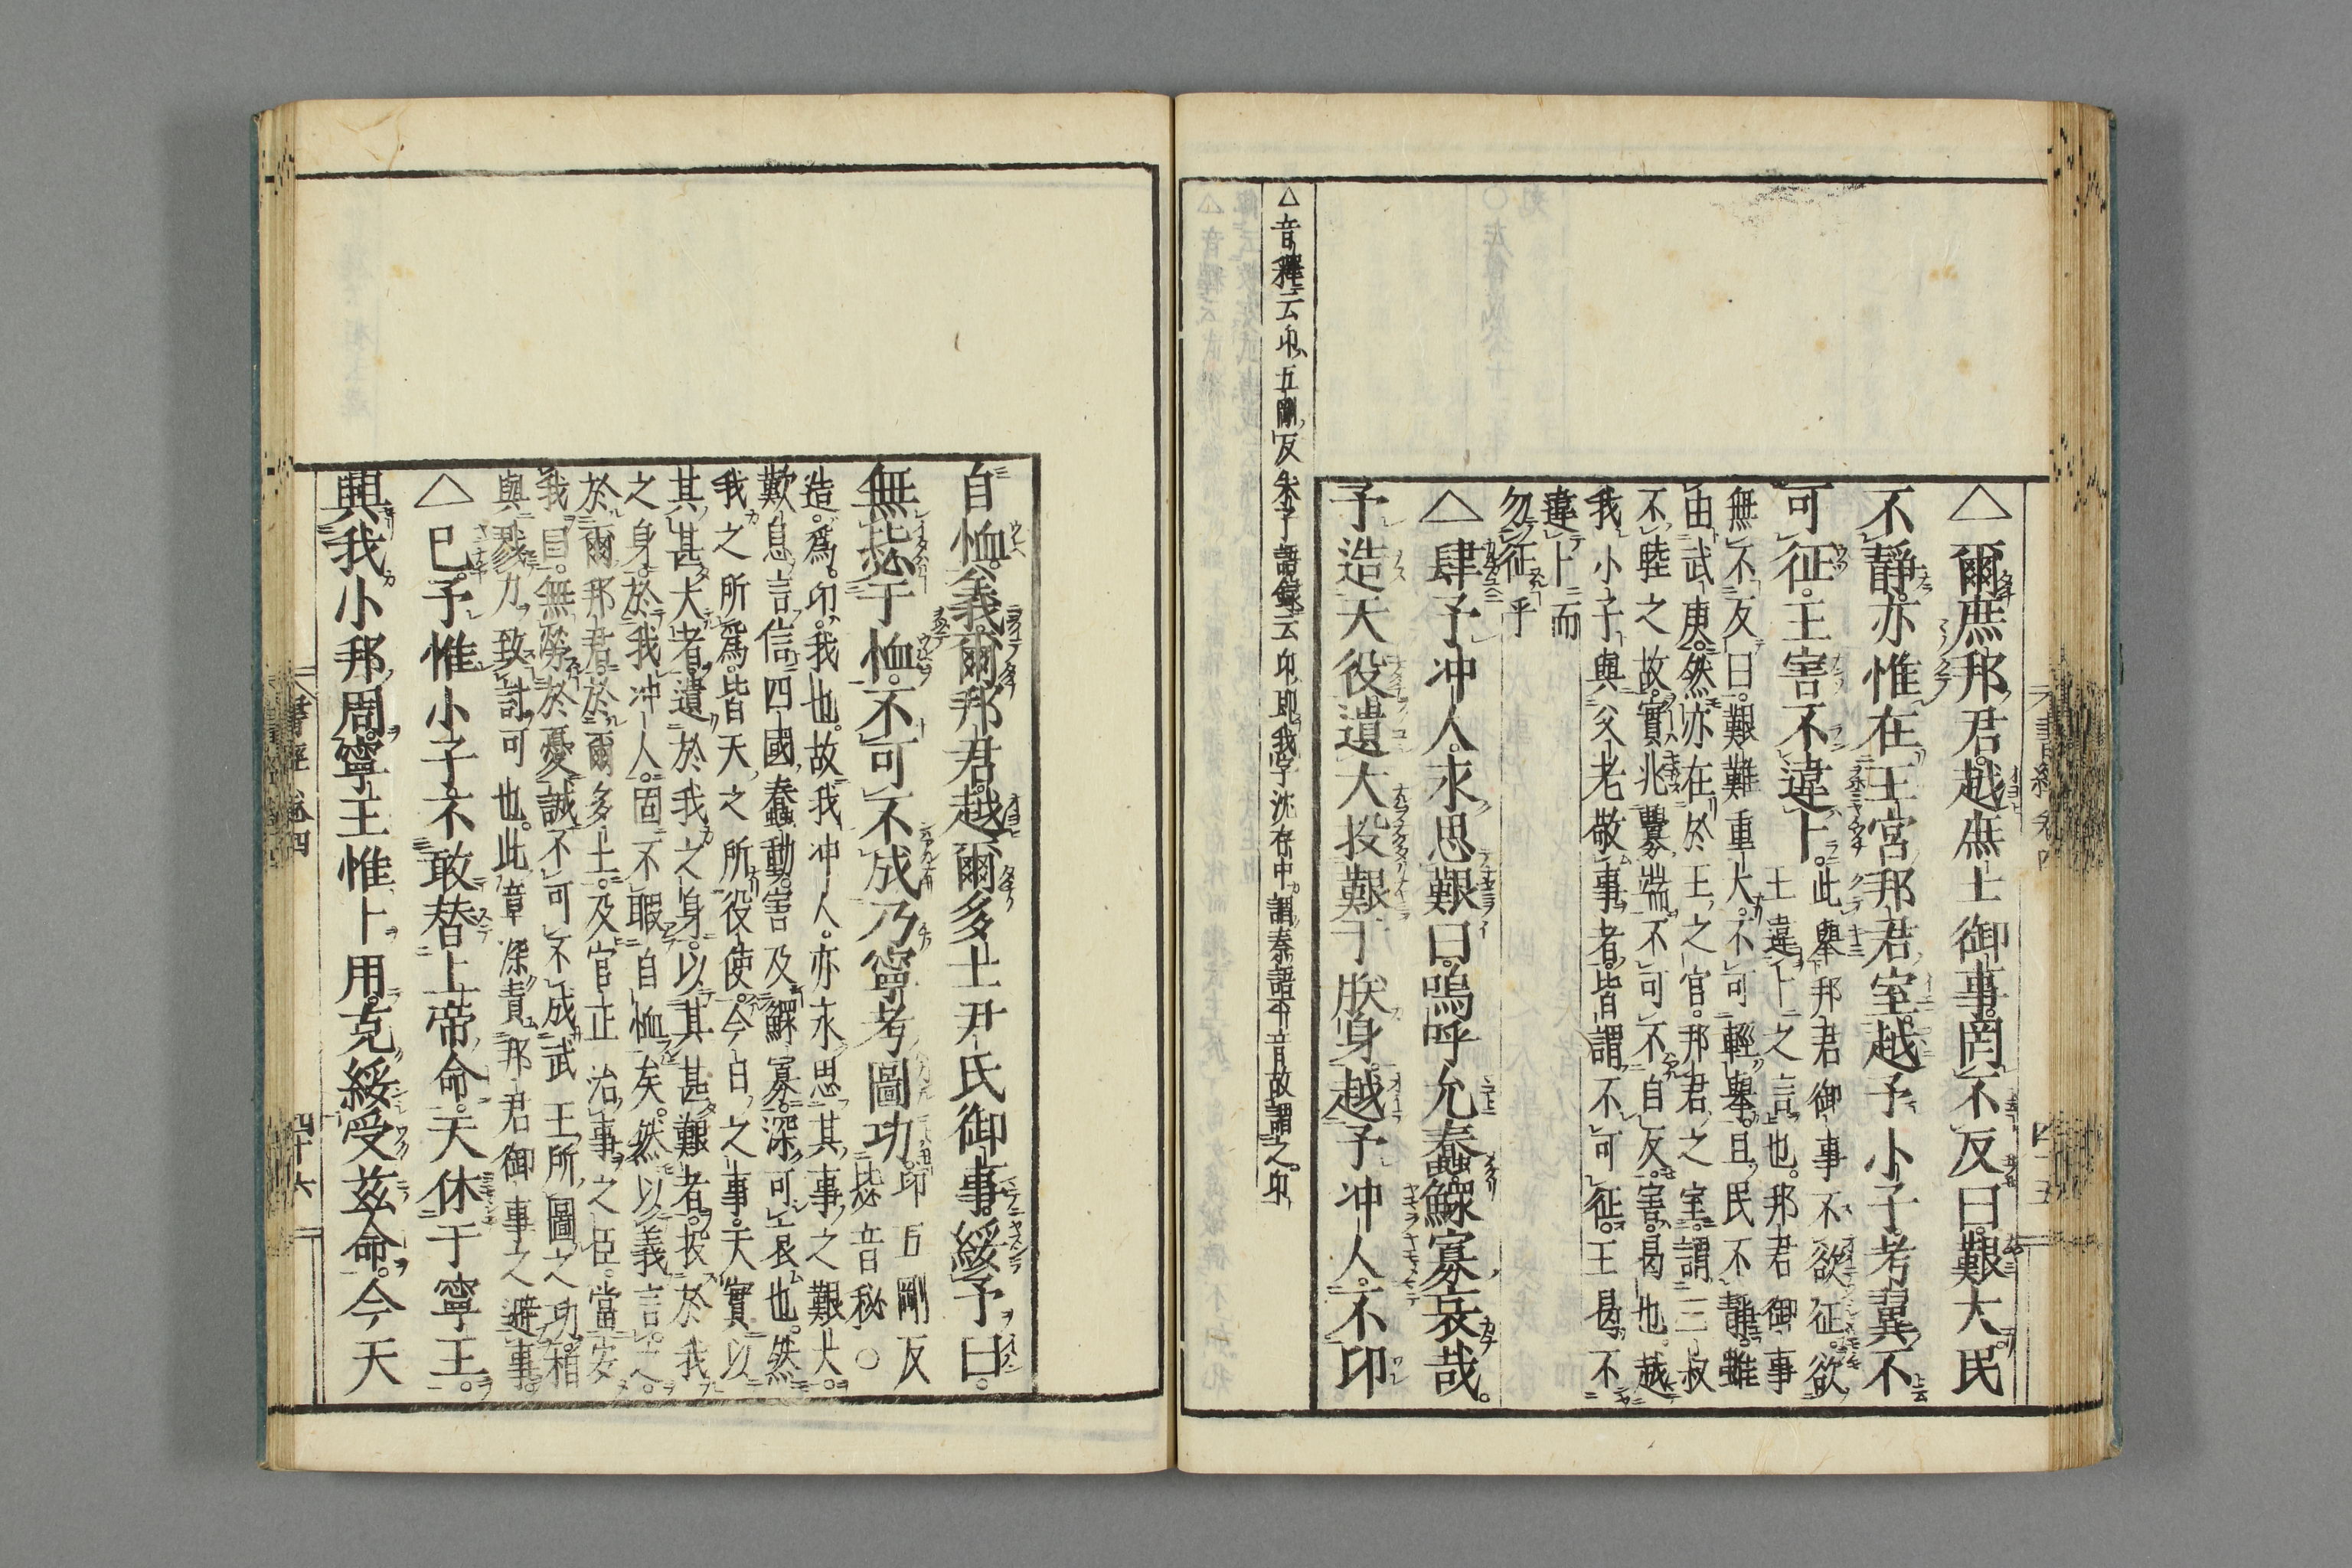 △爾庶邦君越庶士御事罔不反曰艱大民
不靜亦惟在王宮邦君室越予小子考翼不
可征王害不違卜
此舉邦君御事不欲征欲
王違卜之言也邦君御事
無不反曰艱難重大不可輕舉且民不靜雖
由武庚然亦在於王之官邦君之室謂三叔
不睦之故實兆釁端不可不自反害曷也越
我小子與父老敬事者皆謂不可征王曷不
違卜而
勿征乎
△肆予冲人永思艱曰嗚呼允蠢鰥寡哀哉
予造天役遺大投艱于朕身越予冲人不卬
△音釋云卬五剛反朱子語錄云卬即我字沈存中謂秦語平音故謂之卬
自恤義爾邦君越爾多士尹氏御事綏予曰
無毖于恤不可不成乃寧考圖功
卬五剛反
毖音秘○
造爲卬我也故我冲人亦永思其事之艱大
歎息言信四國蠢動害及鰥寡深可哀也然
我之所爲皆天之所役使今日之事天實以
其甚大者遺於我之身以其甚難者投於我
之身於我冲人固不暇自恤矣然以義言之
於爾邦君於爾多士及官正治事之臣當安
我曰無勞於憂誠不可不成武王所圖之功相
與戮力致討可也此章深責邦君御事之避事
△已予惟小子不敢替上帝命天休于寧王
興我小邦周寧王惟卜用克綏受茲命今天
書經 卷四 四十六